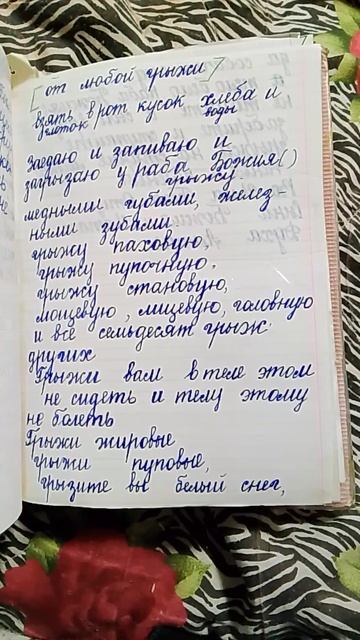 [от любой грыжи]
взять в рот кусок хлеба и
глоток воды
Заедаю и запиваю и
загрызаю у раба Божия()
грыжу
медными губами, желез-
ными зубами.
грыжу паховую,
грыжу пупочную,
грыжу становую,
мошевую, лицевую, головную
и все семьдесят грыж
других
Грыжи вам в теле этом
не сидеть и телу этому
не болеть
Грыжи жировые
грыжи пуповые,
грызите вы белый снег,